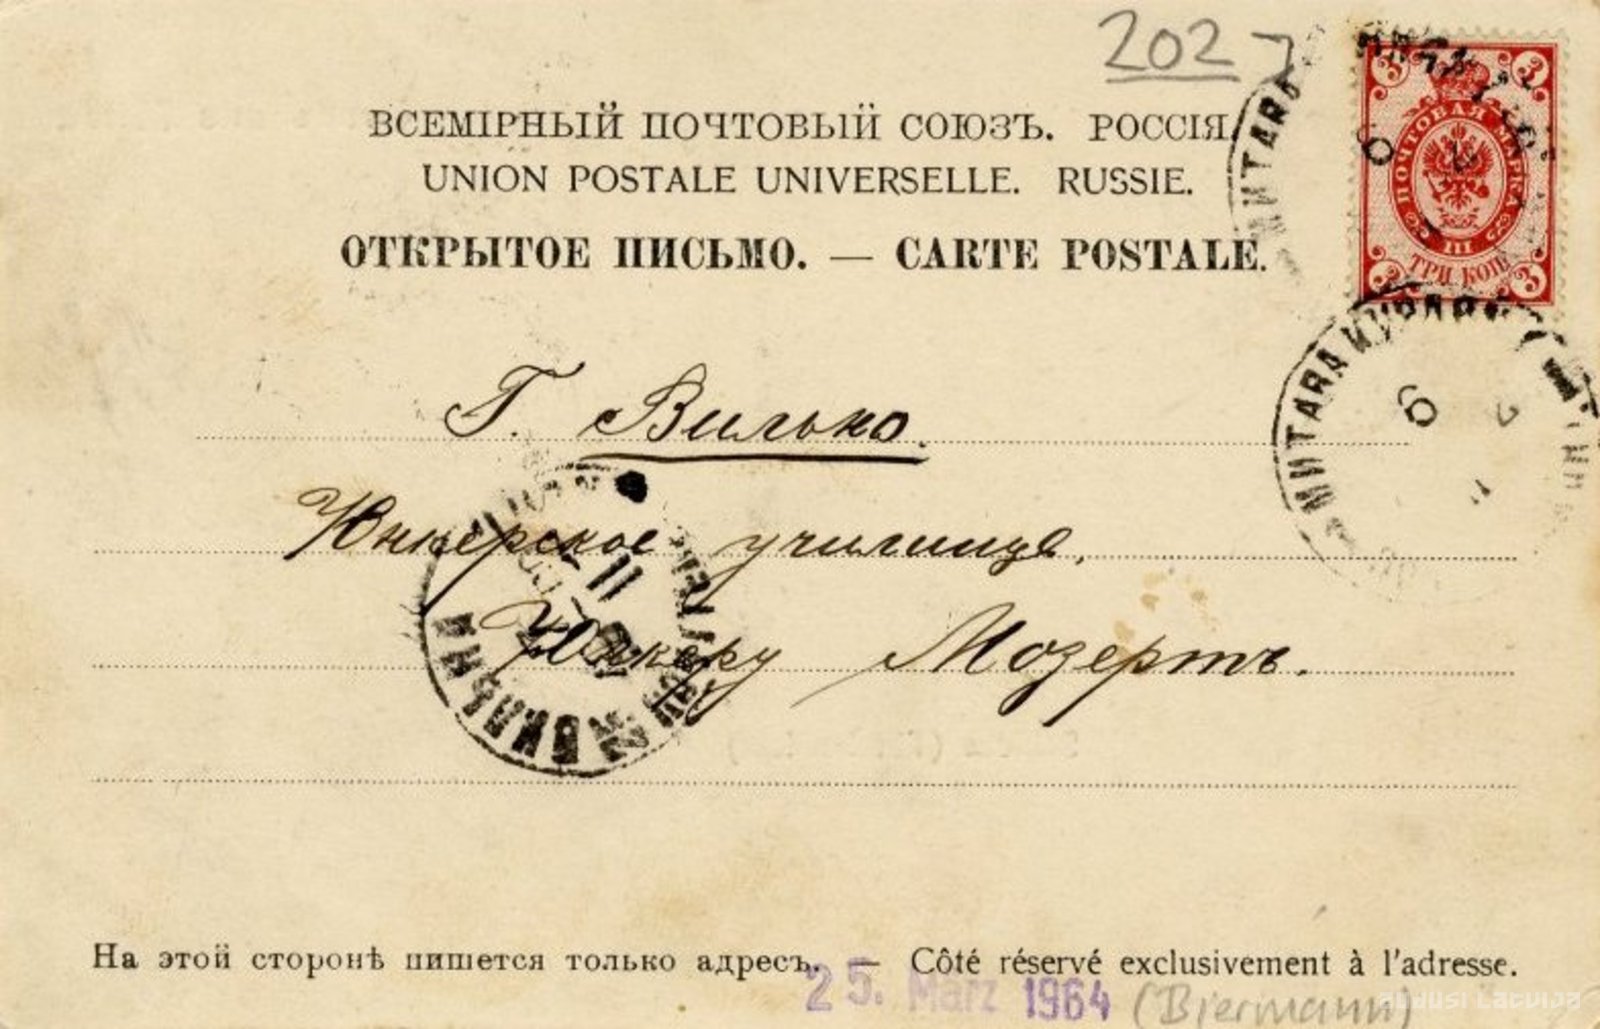 202
ВСЕМІРНЫЙ ПОЧТОВЫЙ СОЮЗЪ. РОССІЯ
UNION POSTALE UNIVERSELLE. RUSSIE.
ОТКРЫТОЕ ПИСЬМО. — CARTE POSTALE.
3 3
ПОЧТОВАЯ МАРКА
III
ТРИ КОП
3 3
МИТАВА
6
МИТАВА
6
Г. Вильно.
Юнкерское училище,
Юнкеру Мозертъ.
11
ВИЛЬНА
На этой сторонѣ пишется только адресъ. — Côté réservé exclusivement à l'adresse.
25. März 1964 (Biermann)
ZUDUSI LATVIJA